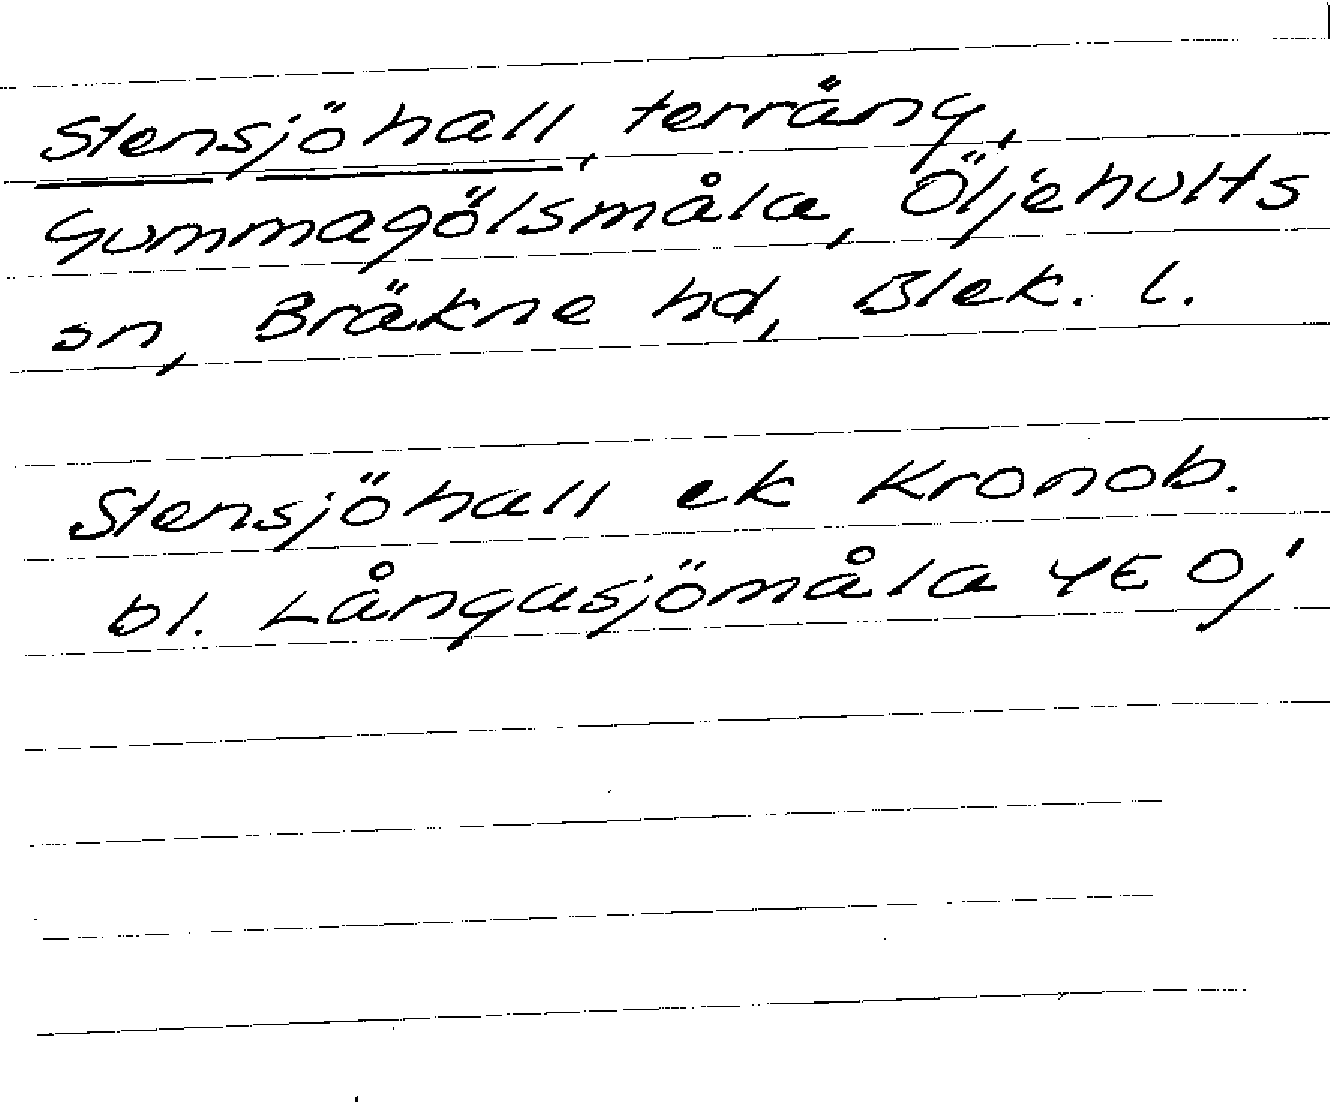 Stensjöhall, terräng,
Gummagölsmåla, Öljehults
sn, Bräkne hd, Blek. l.
Stensjöhall ek Kronob.
bl. Långasjömåla 4E 0j